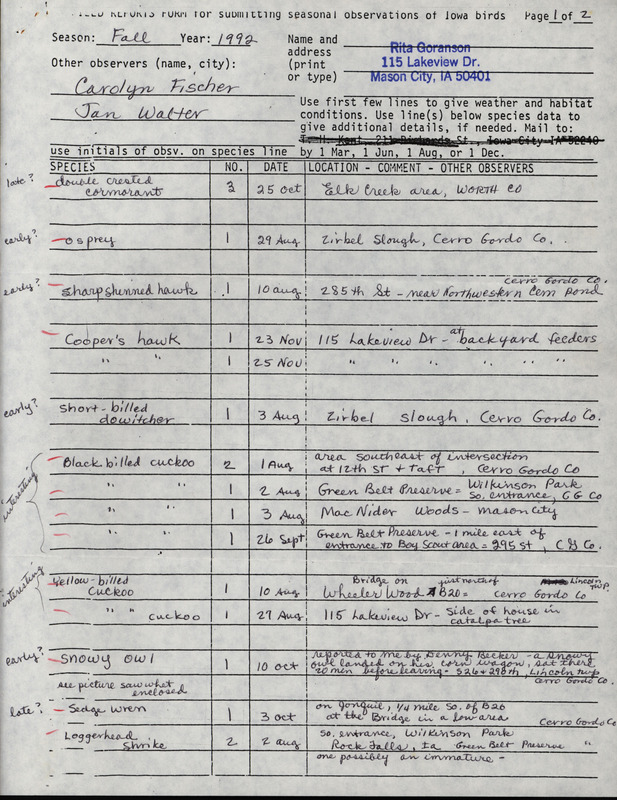 FIELD REPORTS FORM for submitting seasonal observations of Iowa birds Page 1 of 2
Season: Fall Year: 1992 Name and address (print or type) Rita Goranson
115 Lakeview Dr.
Mason City, IA 50401
Other observers (name, city):
Carolyn Fischer
Jan Walter
Use first few lines to give weather and habitat
conditions. Use line(s) below species data to
give additional details, if needed. Mail to:
T. H. Kent, 211 Richards St., Iowa City IA 52240
use initials of obsv. on species line by 1 Mar, 1 Jun, 1 Aug, or 1 Dec.
SPECIES NO. DATE LOCATION - COMMENT - OTHER OBSERVERS
late? double crested
cormorant 3 25 Oct Elk Creek area, WORTH CO
early? osprey 1 29 Aug Zirbel Slough, Cerro Gordo Co.
early? sharp shinned hawk 1 10 aug 285th St - near Northwestern Cem pond Cerro Gordo Co.
Cooper's hawk 1 23 Nov 115 Lakeview Dr - at backyard feeders
" " 1 25 Nov " " " " " "
early? short-billed
dowitcher 1 3 Aug Zirbel Slough, Cerro Gordo Co.
interesting
Black billed cuckoo 2 1 Aug area southeast of intersection
at 12th ST + Taft, Cerro Gordo Co
" " 1 2 Aug Green Belt Preserve = Wilkinson Park
So. entrance, C G Co
" " 1 3 Aug Mac Nider Woods - mason city
" " 1 26 Sept Green Belt Preserve - 1 mile east of
entrance to Boy Scout area = 295 st, C G Co.
interesting
Yellow-billed
cuckoo 1 10 Aug Bridge on Wheeler Wood just north of B20 = Lincoln Twp.
cerro Gordo Co
" " cuckoo 1 27 Aug 115 Lakeview Dr - side of house in
catalpa tree
early? Snowy owl 1 10 oct reported to me by Denny Becker - a snowy
owl landed on his corn wagon, sat there
20 min before leaving - S26 + 298th, Lincoln twp
Cerro Gordo Co.
see picture saw whet
enclosed
late? Sedge wren 1 3 oct on Jonquil, 1/4 mile So. of B20
at the Bridge in a low area Cerro Gordo Co
Loggerhead
Shrike 2 2 aug So. entrance, Wilkinson Park
Rock Falls, Ia Green Belt Preserve "
one possibly an immature -